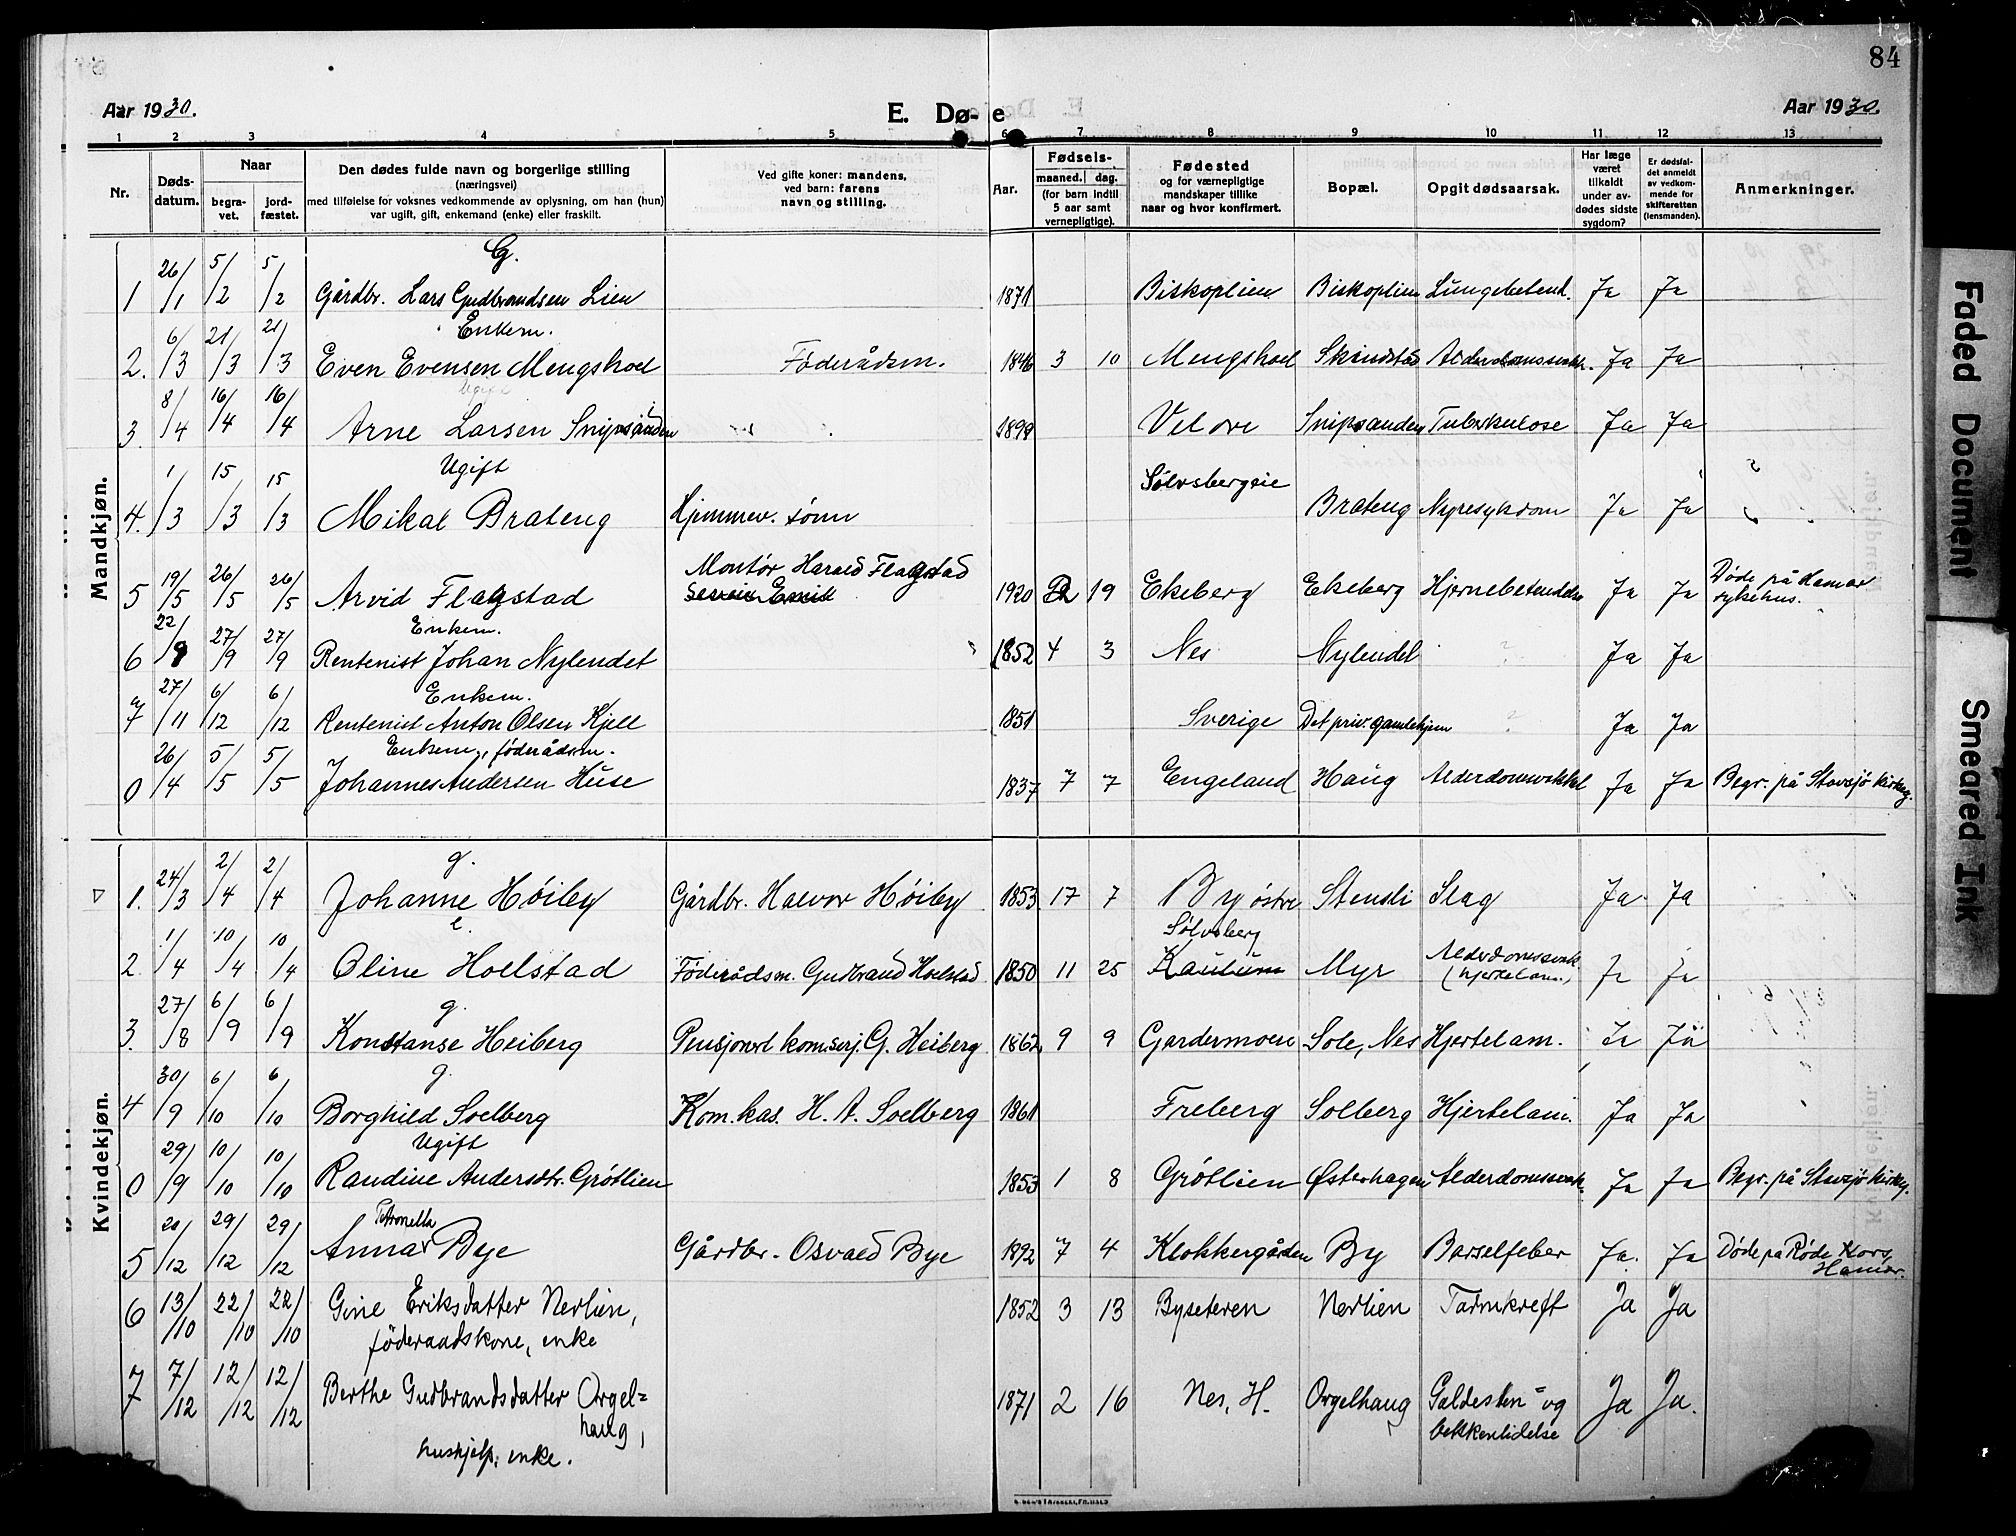 84
Aar 1930.
E. Dø- e
Aar 1930.
1 2 3 4 5 6 7 8 9 10 11 12 13
Nr.
Døds-datum.
Naar
begra-vet.
jord-fæstet.
Den dødes fulde navn og borgerlige stilling
(næringsvei)
med tilføielse for voksnes vedkommende av oplysning, om han (hun)
var ugift, gift, enkemand (enke) eller fraskilt.
Ved gifte koner: mandens,
ved barn: farens
navn og stilling.
Aar.
Fødsels-
maaned. dag.
(for barn indtil
5 aar samt
vernepligtige).
Fødested
og for værnepligtige
mandskaper tillike
naar og hvor konfirmert.
Bopæl.
Opgit dødsaarsak.
Har læge
været
tilkaldt
under av-
dødes sidste
sygdom?
Er dødsfal-
det anmeldt
av vedkom-
mende for
skifteretten
(lensmanden).
Anmerkninger.
Mandkjøn.
G.
1 26/1 5/2 5/2 Gårdbr. Lars Gudbrandsen Lien 1871 Biskoplien Biskoplien Lungebetend. Ja Ja
Enkem.
2. 6/3 21/3 21/3 Even Evensen Mengshoel Föderådsm. 1846 3 10 Mengshoel Skindstad Alderdomssvakh. Ja Ja
Ugift
3. 8/4 16/4 16/4 Arne Larsen Snipsanden 1899 Velore Snipsanden Tuberkulose Ja Ja
Ugift
4. 1/3 15/3 15/3 Mikal Brateng Hjemmev. sönn Sølvsbergeie Brateng Nyresykdom Ja Ja
5 19/5 26/5 26/5 Arvid Flagstad Montør Harald Flagstad 1920 19 Ekeberg Ekeberg Hjernebetendelse Ja Ja Døde på Hamar sykehus.
Enkem.
6 22/9 27/9 27/9 Rentenist Johan Nylendet 1852 4 3 Nes Nylendet ? Ja Ja
Enkem.
7 27/11 6/12 6/12 Rentenist Anton Olsen Kjell 1851 Sverige Det priv. gamlehjem ? Ja Ja
Enkem., föderådsm.
0 26/4 5/5 5/5 Johannes Andersen Huse 1837 7 7 Engeland Haug Alderdomssvakhet Ja Ja Begr. på Stavsjø kirkeg.
Kvindekjøn.
g.
1. 24/3 2/4 2/4 Johanne Høiby Gårdbr. Halvor Høiby 1853 17 7 By østre Stensli Slag Ja Ja
e.
2 1/4 10/4 10/4 Oline Hoelstad Föderådsm. Gudbrand Hoelstad 1850 11 25 Sølvsberg Kaulum Myr Alderdomssvak. (hjertelam.) Ja Ja
g.
3. 27/8 6/9 6/9 Konstanse Heiberg Pensjonert kom.serj. G. Heiberg 1862 9 9 Gardermoen Sole, Nes Hjertelam. Ja Ja
g.
4 30/9 6/10 6/10 Borghild Solberg Kom.kas. H. A. Solberg 1861 Freberg Solberg Hjertelam. Ja Ja
Ugift
0 29/9 10/10 10/10 Randine Andersdtr. Grøtlien 1853 1 8 Grøtlien Østerhagen Alderdomssvak. Ja Ja Begr. på Stavsjø kirkeg.
Petronella
5 20/12 29/12 29/12 Anna Bye Gårdbr. Osvald Bye 1892 7 4 Klokkergården By Barselfeber Ja. Ja Døde på Røde Kors, Hamar.
6 13/10 22/10 22/10 Gine Eriksdatter Nerlien, 1852 3 13 Byseteren Nerlien Tarmkreft Ja Ja
föderaadskone, enke
7 7/12 12/12 12/12 Berthe Gudbrandsdatter Orgel= 1871 2 16 Nes, H. Orgelhaug Galdesten = og Ja Ja.
haug, bekkenlidelse
huskjelp, enke.
Faded Document
Smeared Ink